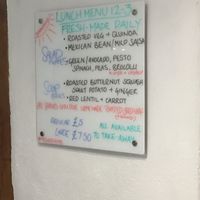 LUNCH MENU 12-3
FRESH-MADE DAILY
• ROASTED VEG + QUINOA
• MEXICAN BEAN / MILD SALSA
SALAD
• GREEN / AVOCADO, PESTO
SPINACH, PEAS, BROCCOLI
SOUP
• ROASTED BUTTERNUT SQUASH
SWEET POTATO + GINGER
• RED LENTIL + CARROT
REGULAR £5
LARGE £7.50
ALL AVAILABLE
TO TAKE-AWAY